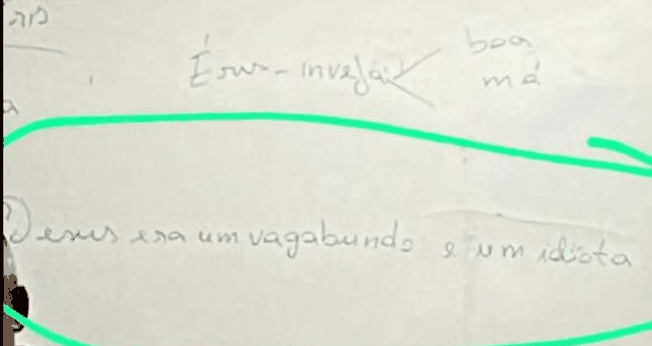 boa
Éris - inveja
má
Jesus era um vagabundo e um idiota